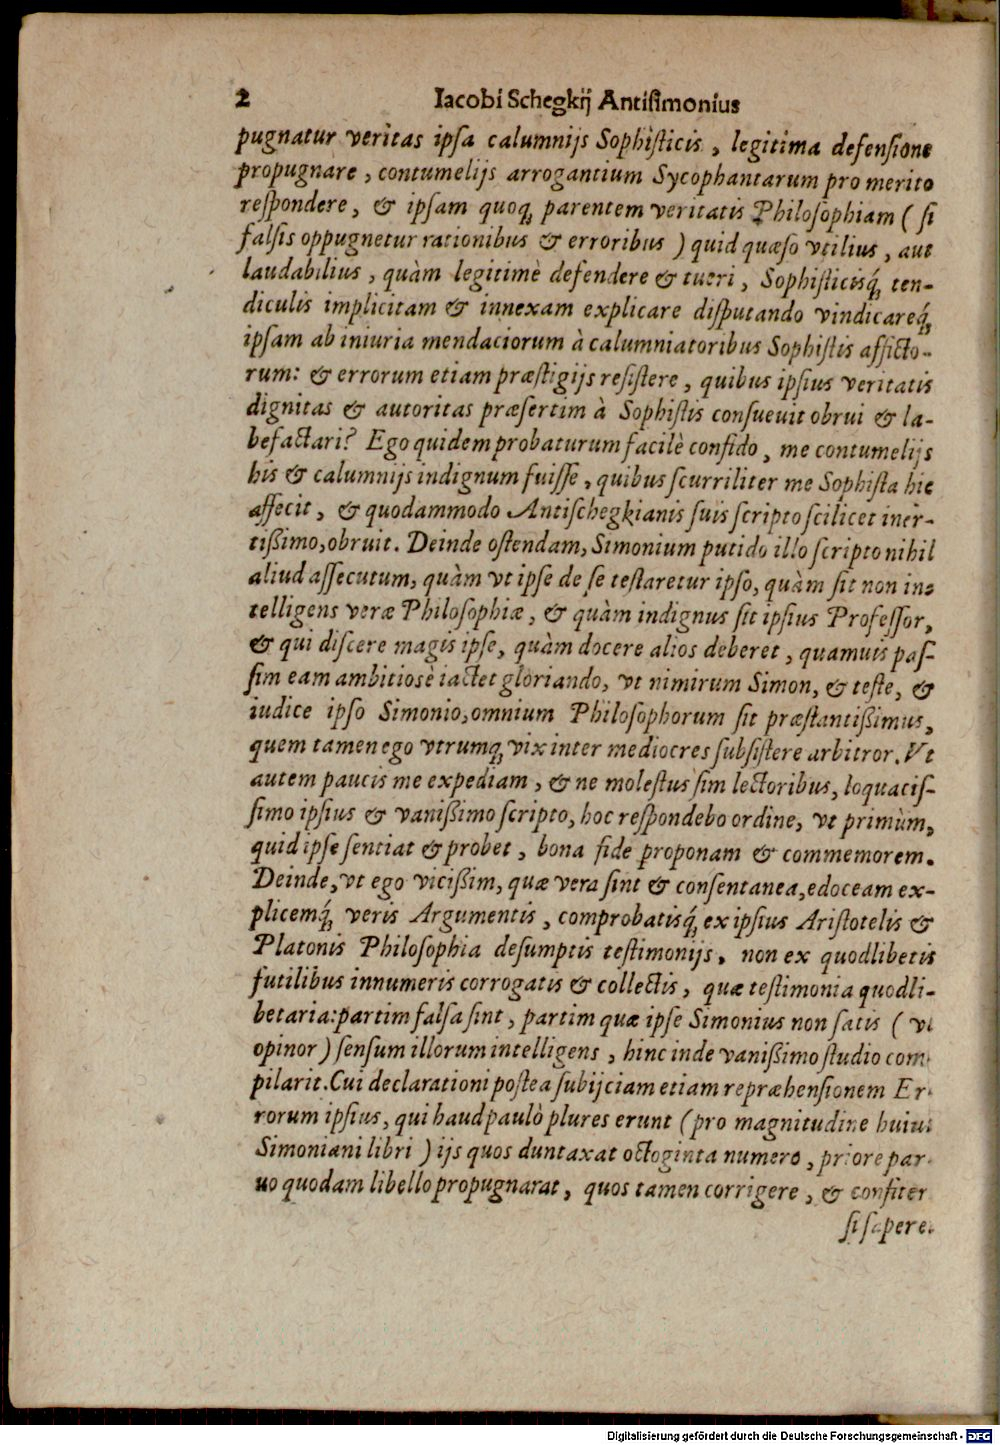 2 Iacobi Schegkij Antisimonius
pugnatur veritas ipsa calumnijs Sophisticis, legitima defensione
propugnare, contumelijs arrogantium Sycophantarum pro merito
respondere, & ipsam quoq; parentem veritatis Philosophiam (si
falsis oppugnetur rationibus & erroribus) quid quæso vtilius, aut
laudabilius, quàm legitimè defendere & tueri, Sophisticisq́; ten-
diculis implicitam & innexam explicare disputando vindicareq́;
ipsam ab iniuria mendaciorum à calumniatoribus Sophistis afficto-
rum: & errorum etiam præstigijs resistere, quibus ipsius veritatis
dignitas & autoritas præsertim à Sophistis consueuit obrui & la-
befactari? Ego quidem probaturum facilè confido, me contumelijs
his & calumnijs indignum fuisse, quibus scurriliter me Sophista hic
affecit, & quodammodo Antischegkianis suis scripto scilicet iner-
tißimo, obruit. Deinde ostendam, Simonium putido illo scripto nihil
aliud assecutum, quàm vt ipse de se testaretur ipso, quàm sit non in-
telligens veræ Philosophiæ, & quàm indignus sit ipsius Professor,
& qui discere magis ipse, quàm docere alios deberet, quamuis pas-
sim eam ambitiosè iactet gloriando, vt nimirum Simon, & teste, &
iudice ipso Simonio, omnium Philosophorum sit præstantißimus,
quem tamen ego vtrumq; vix inter mediocres subsistere arbitror. Vt
autem paucis me expediam, & ne molestus sim lectoribus, loquacis-
simo ipsius & vanißimo scripto, hoc respondebo ordine, vt primùm,
quid ipse sentiat & probet, bona fide proponam & commemorem.
Deinde, vt ego vicißim, quæ vera sint & consentanea, edoceam ex-
plicemq́; veris Argumentis, comprobatisq́; ex ipsius Aristotelis &
Platonis Philosophia desumptis testimonijs, non ex quodlibetis
futilibus innumeris corrogatis & collectis, quæ testimonia quodli-
betaria: partim falsa sint, partim quæ ipse Simonius non satis (vt
opinor) sensum illorum intelligens, hinc inde vanißimo studio com
pilarit. Cui declarationi postea subijciam etiam repræhensionem Er-
rorum ipsius, qui haud paulò plures erunt (pro magnitudine huius
Simoniani libri) ijs quos duntaxat octoginta numero, priore par-
uo quodam libello propugnarat, quos tamen corrigere, & confiter
si sapere
Digitalisierung gefördert durch die Deutsche Forschungsgemeinschaft - DFG